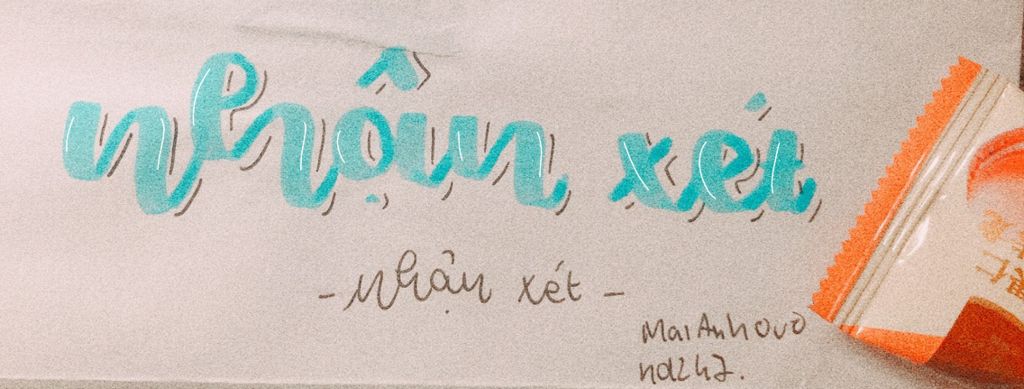 nhận xét
- nhận xét -
MaiAnhovo
nd247.